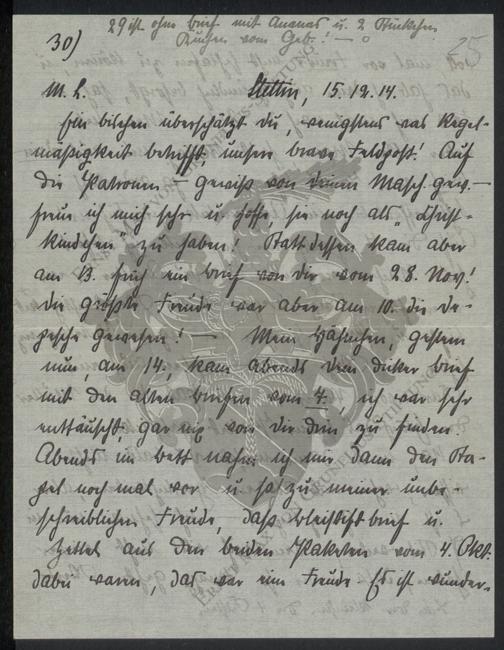 29 ist ohne Brief mit Ananas u. 2 Stückchen
Kuchen vom Geb.! — o
30)
25
M. L. Stettin, 15.12.14.
Ein bischen überschätzt Du, wenigstens was Regel-
mäßigkeit betrifft, unsere brave Feldpost! Auf
die Patronen — gewiß von Deinem Masch.gew. —
freu ich mich sehr u. hoffe, sie noch als „Christ-
kindchen" zu haben! Statt dessen kam aber
am 13. früh ein Brief von Dir vom 28. Nov.!
Die größte Freude war aber am 10. die De-
pesche gewesen! — Mein Hähnchen, gestern
nun am 14. kam abends Dein dicker Brief
mit den alten Briefen vom 4., ich war sehr
enttäuscht, gar nix von Dir drin zu finden.
Abends im Bett nahm ich mir dann den Sta-
pel noch mal vor u. sah zu meiner unbe-
schreiblichen Freude, daß Bleistiftbrief u.
Zettel aus den beiden Paketen vom 4. Okt.
dabei waren, das war eine Freude! Es ist wunder-